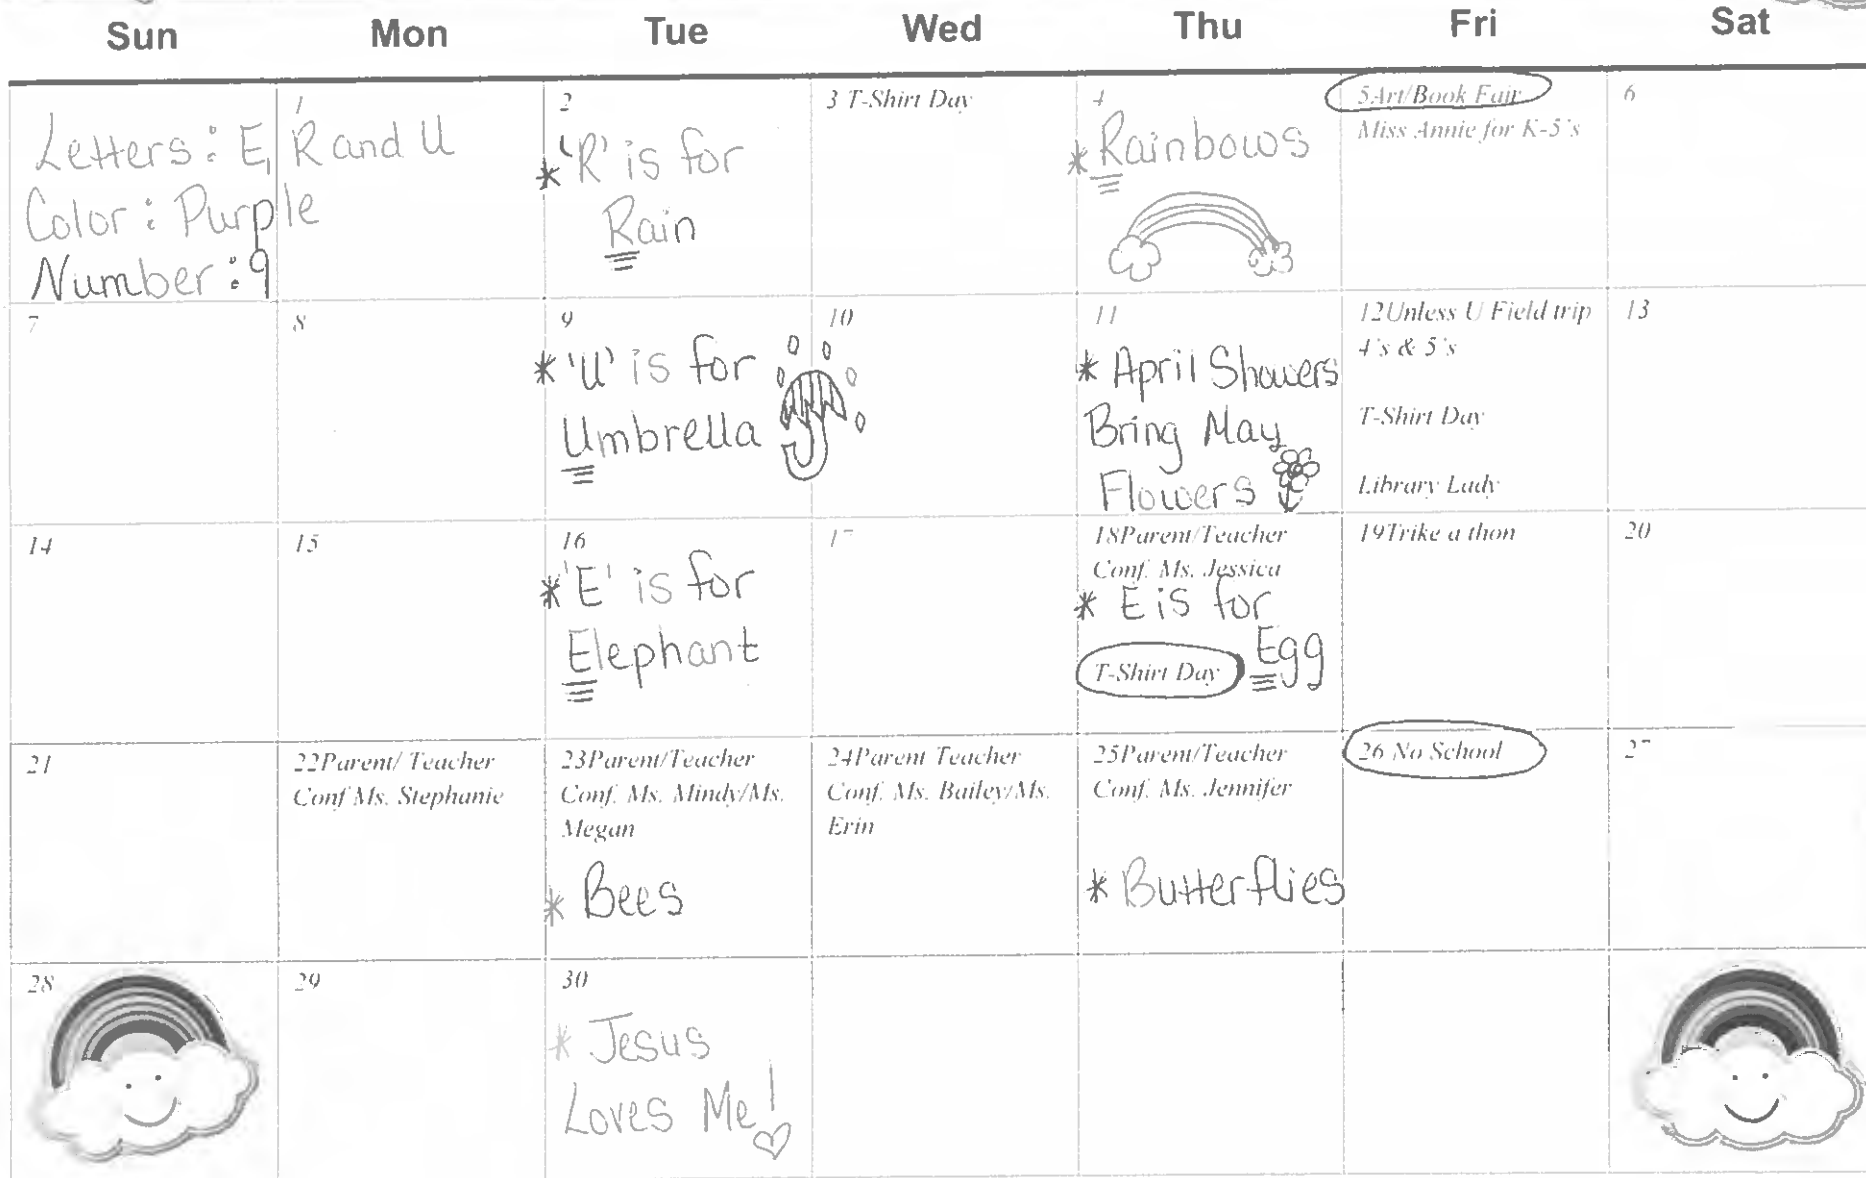 Sun Mon Tue Wed Thu Fri Sat
Letters: E, R and U
Color: Purple
Number: 9
1
2
*'R' is for
Rain
3 T-Shirt Day
4
*Rainbows
5Art/Book Fair
Miss Annie for K-5's
6
7
8
9
*'U' is for
Umbrella
10
11
* April Showers
Bring May
Flowers
12Unless U Field trip
4's & 5's
T-Shirt Day
Library Lady
13
14
15
16
*'E' is for
Elephant
17
18Parent/Teacher
Conf. Ms. Jessica
* E is for
Egg
T-Shirt Day
19Trike a thon
20
21
22Parent/ Teacher
Conf Ms. Stephanie
23Parent/Teacher
Conf. Ms. Mindy/Ms.
Megan
* Bees
24Parent Teacher
Conf. Ms. Bailey/Ms.
Erin
25Parent/Teacher
Conf. Ms. Jennifer
* Butterflies
26 No School
27
28
29
30
* Jesus
Loves Me!